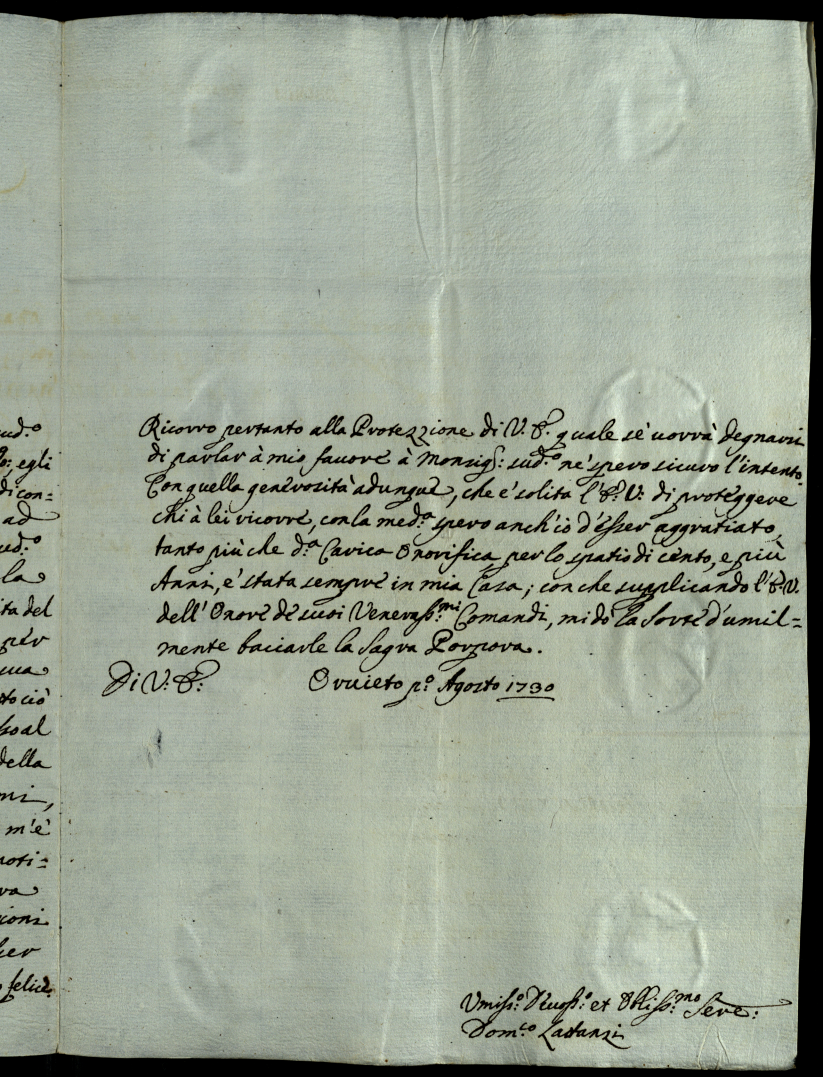 ud.º
o: egli
dicon=
ad
ud.º
la
ita del
per
sua
to ciò
so al
della
ni,
m'è
noti=
ra
cioni
per
felice
Ricorro pertanto alla Protezzione di V. E. quale sè uorrà degnarsi
di parlar à mio fauore à Monsig.: sud.º nè spero sicuro l'intento.
Con quella generosità adunque, che è solita l'E. V. di proteggere
chi à lei ricorre, con la med.ª spero anch'io d'esser aggratiato,
tanto più che d.ª Carica Onorifica per lo spatio di cento, e più
Anni, è stata sempre in mia Casa; con che supplicando l'E. V.
dell'Onore de suoi Veneratiss.mi Comandi, mi dò la sorte d'umil=
mente baciarle la Sagra Porpora.
Di V. E.: Oruieto p.º Agosto 1730
Vmiss.º Deuoss.º et Obliss.mo Serv.:
Dom.co